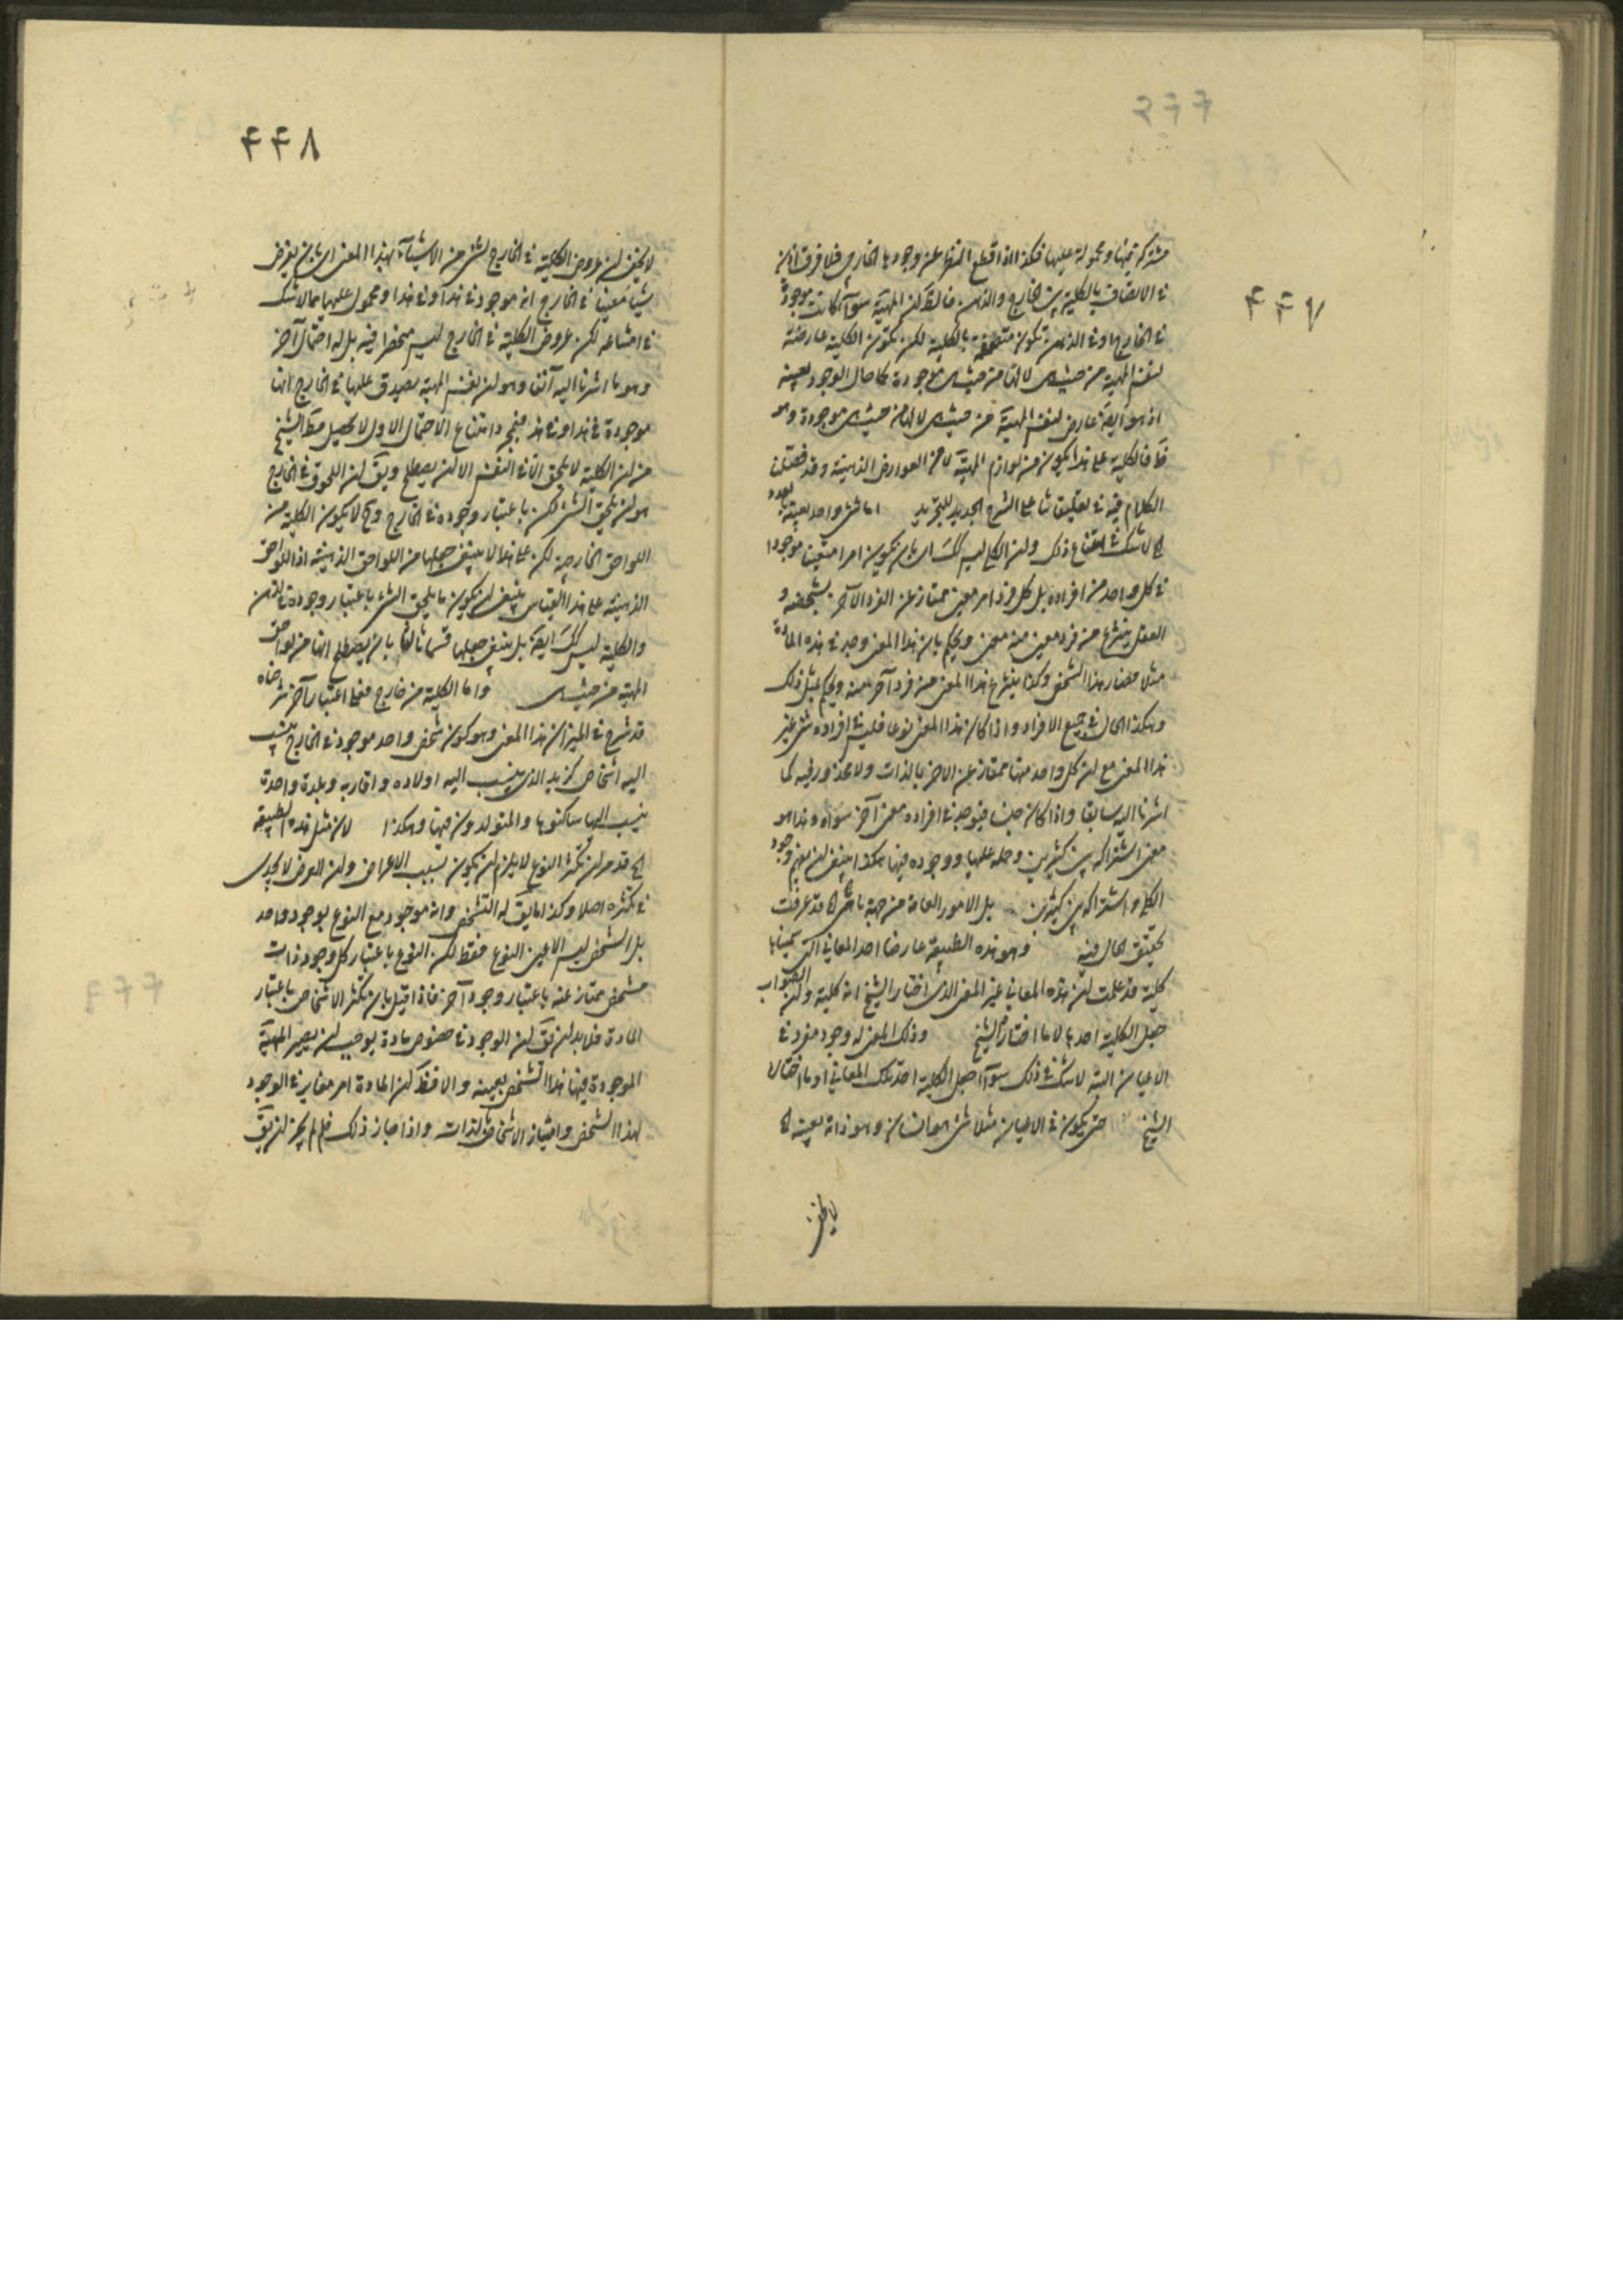 ٤٤٧
مشتركة بينها ومحمولة عليها فكذا اذا قطع النظر عن وجودها الخارجي فلا فرق اذن
في الاتصاف بالكلية بين الخارج والذهن فالظ لن المهية سوآء كانت موجودة
في الخارج او في الذهن تكون متصفة بالكلية لكن تكون الكلية عارضة
لنفس المهية من حيث هي لا لها من حيث هي موجودة كما حال الوجود بعينه
اذ هو ايضا عارض لنفس المهية من حيث هي لا لها من حيث هي موجودة وهو
فالكلية على هذا يكون من لوازم المهية لا من العوارض الذهنية وقد فصلنا
الكلام فيه في تعليقاتنا على الشرح الجديد للتجريد اما شئ واحد بعينه
لا شك في امتناع ذلك ولن الكلي ليس كك اي بان يكون امرا متعين موجودا
في كل واحد من افراده بل كل فرد امر معين ممتاز عن الفرد الآخر بشخصه و
العقل ينتزع من فرد معين منه معنى ويحكم بان هذا المعنى وجد في هذه المادة
مثلا فصار هذا الشخص وكذا ينتزع هذا المعنى من فرد آخر منه ويحكم بمثل ذلك
وهكذا الحال في جميع الافراد واذا كان هذا المعنى نوعا فليس في افراده شئ غير
هذا المعنى مع لن كل واحد منها ممتاز عن الاخر بالذات ولا محذور فيه كما
اشرنا اليه سابقا واذا كان جنسا فيوجد في افراده معنى آخر سواه وهذا هو
معنى اشتراكه بين كثيرين وحمله عليها ووجوده فيها هكذا ينبغي لن يفهم وجود
الكلي واشتراكه بين كثيرين بل الامور العامة من جهة ما قد عرفت
تحقيق الحال فيه وهو هذه الطبيعة عارضا احد المعاني التي سميناها
كلية قد علمت لن هذه المعاني غير المعنى الذي اختار الشيخ انه كلية ولن الصواب
جعل الكلية احدها لا ما اختاره الشيخ وذلك المعنى له وجود مفرد في
الاعيان البتة لا شك في ذلك سوآء جعل الكلية احد تلك المعاني او ما اختاره
الشيخ حتى يكون في الاعيان مثلا شئ هو انسان وهو ذاته بعينه
لا يخفى
٤٤٨
لا يخفى لن عروض الكلية في الخارج لشئ من الاشيآء بهذا المعنى اي بان يفرض
شيئا معينا في الخارج انه موجود في هذا وفي هذا ومحمول عليهما مما لا شك
في امتناعه لكن عروض الكلية في الخارج ليس منحصرا فيه بل له احتمال آخر
وهو ما اشرنا اليه آنفا وهو لن نفس المهية يصدق عليها في الخارج انها
موجودة في هذا وفي هذا فبمجرد امتناع الاحتمال الاول لا يحصل مط الشيخ
من لن الكلية لا يلحق الا في النفس الا لن يصطلح ويق لن اللحوق في الخارج
هو لن يلحق الشئ لكن باعتبار وجوده في الخارج وح لا يكون الكلية من
اللواحق الخارجية لكن على هذا لا ينبغي جعلها من اللواحق الذهنية اذ اللواحق
الذهنية على هذا القياس ينبغي لن يكون ما يلحق الشئ باعتبار وجوده في الذهن
والكلية ليس كك ايضا بل ينبغي جعلها قسما ثالثا بان يصطلح انها من لواحق
المهية من حيث هي واما الكلية من خارج فعلى اعتبار آخر شرحناه
قد شرح في الميزان هذا المعنى وهو كون شخص واحد موجود في الخارج ينسب
اليه اشخاص كزيد الذي ينسب اليه اولاده واقاربه وبلدة واحدة
ينسب اليها ساكنوها والمتولدون فيها وهكذا لان مثل هذه الطبيعة
الخ قد مر لن تكثر النوع لا يلزم لن يكون بسبب الاعراض ولن العرض لا يجدي
في تكثره اصلا وكذا ما يق له التشخص وانه موجود مع النوع بوجود واحد
بل الشخص ليس الا عين النوع فقط لكن النوع باعتبار كل وجود ذات
متشخص ممتاز عنه باعتبار وجود آخر فاذا قيل بان تكثر الاشخاص باعتبار
المادة فلا بد لن يق لن الوجود في خصوص مادة يوجب لن يصير المهية
الموجودة فيها هذا الشخص بعينه والا فظ لن المادة امر مغاير في الوجود
لهذا الشخص وامتياز الاشخاص بالذات واذا جاز ذلك فلم لم يجز لن يق